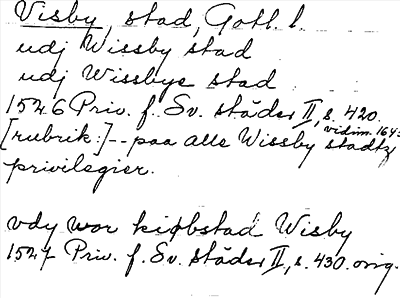 Visby, stad, Gotl. l.
udj Wissby stad
udj Wissbye stad
1526 Priv. f. Sv. städer II, s. 420.
vidim. 1643
[rubrik:] -- paa alle Wissby stadtz
privilegier.
vdy wor kiøbstad Wisby
1527 Priv. f. Sv. städer II, s. 430. orig.